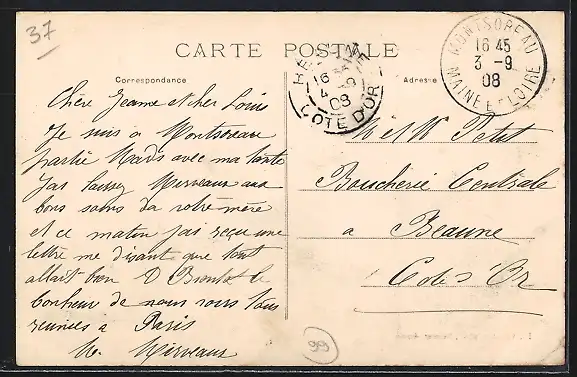 37
CARTE POSTALE
Correspondance
Adresse
MONTSOREAU
16 45
3 -9
08
MAINE ET LOIRE
BEAUNE
16
4 -9
08
COTE D'OR
Chère Jeanne et cher Louis
Je suis a Montsoreau
partie Mardi avec ma tante
jai laissez Merveaux aux
bons soins da votre mère
et ce matin jai reçu une
lettre me disant que tout
allait bien D Bientot le
bonheur de nous vous tous
reunies a Paris
M et M Petit
Boucherie Centrale
a Beaune
Cote d'Or
99